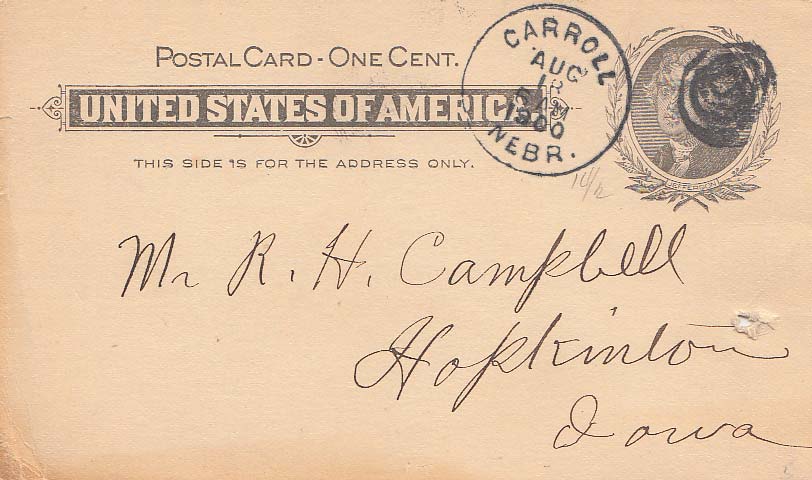 POSTAL CARD - ONE CENT.
UNITED STATES OF AMERICA
THIS SIDE IS FOR THE ADDRESS ONLY.
CARROLL
AUG
18
5 AM
1900
NEBR.
JEFFERSON
Mr R. H. Campbell
Hopkinton
Iowa